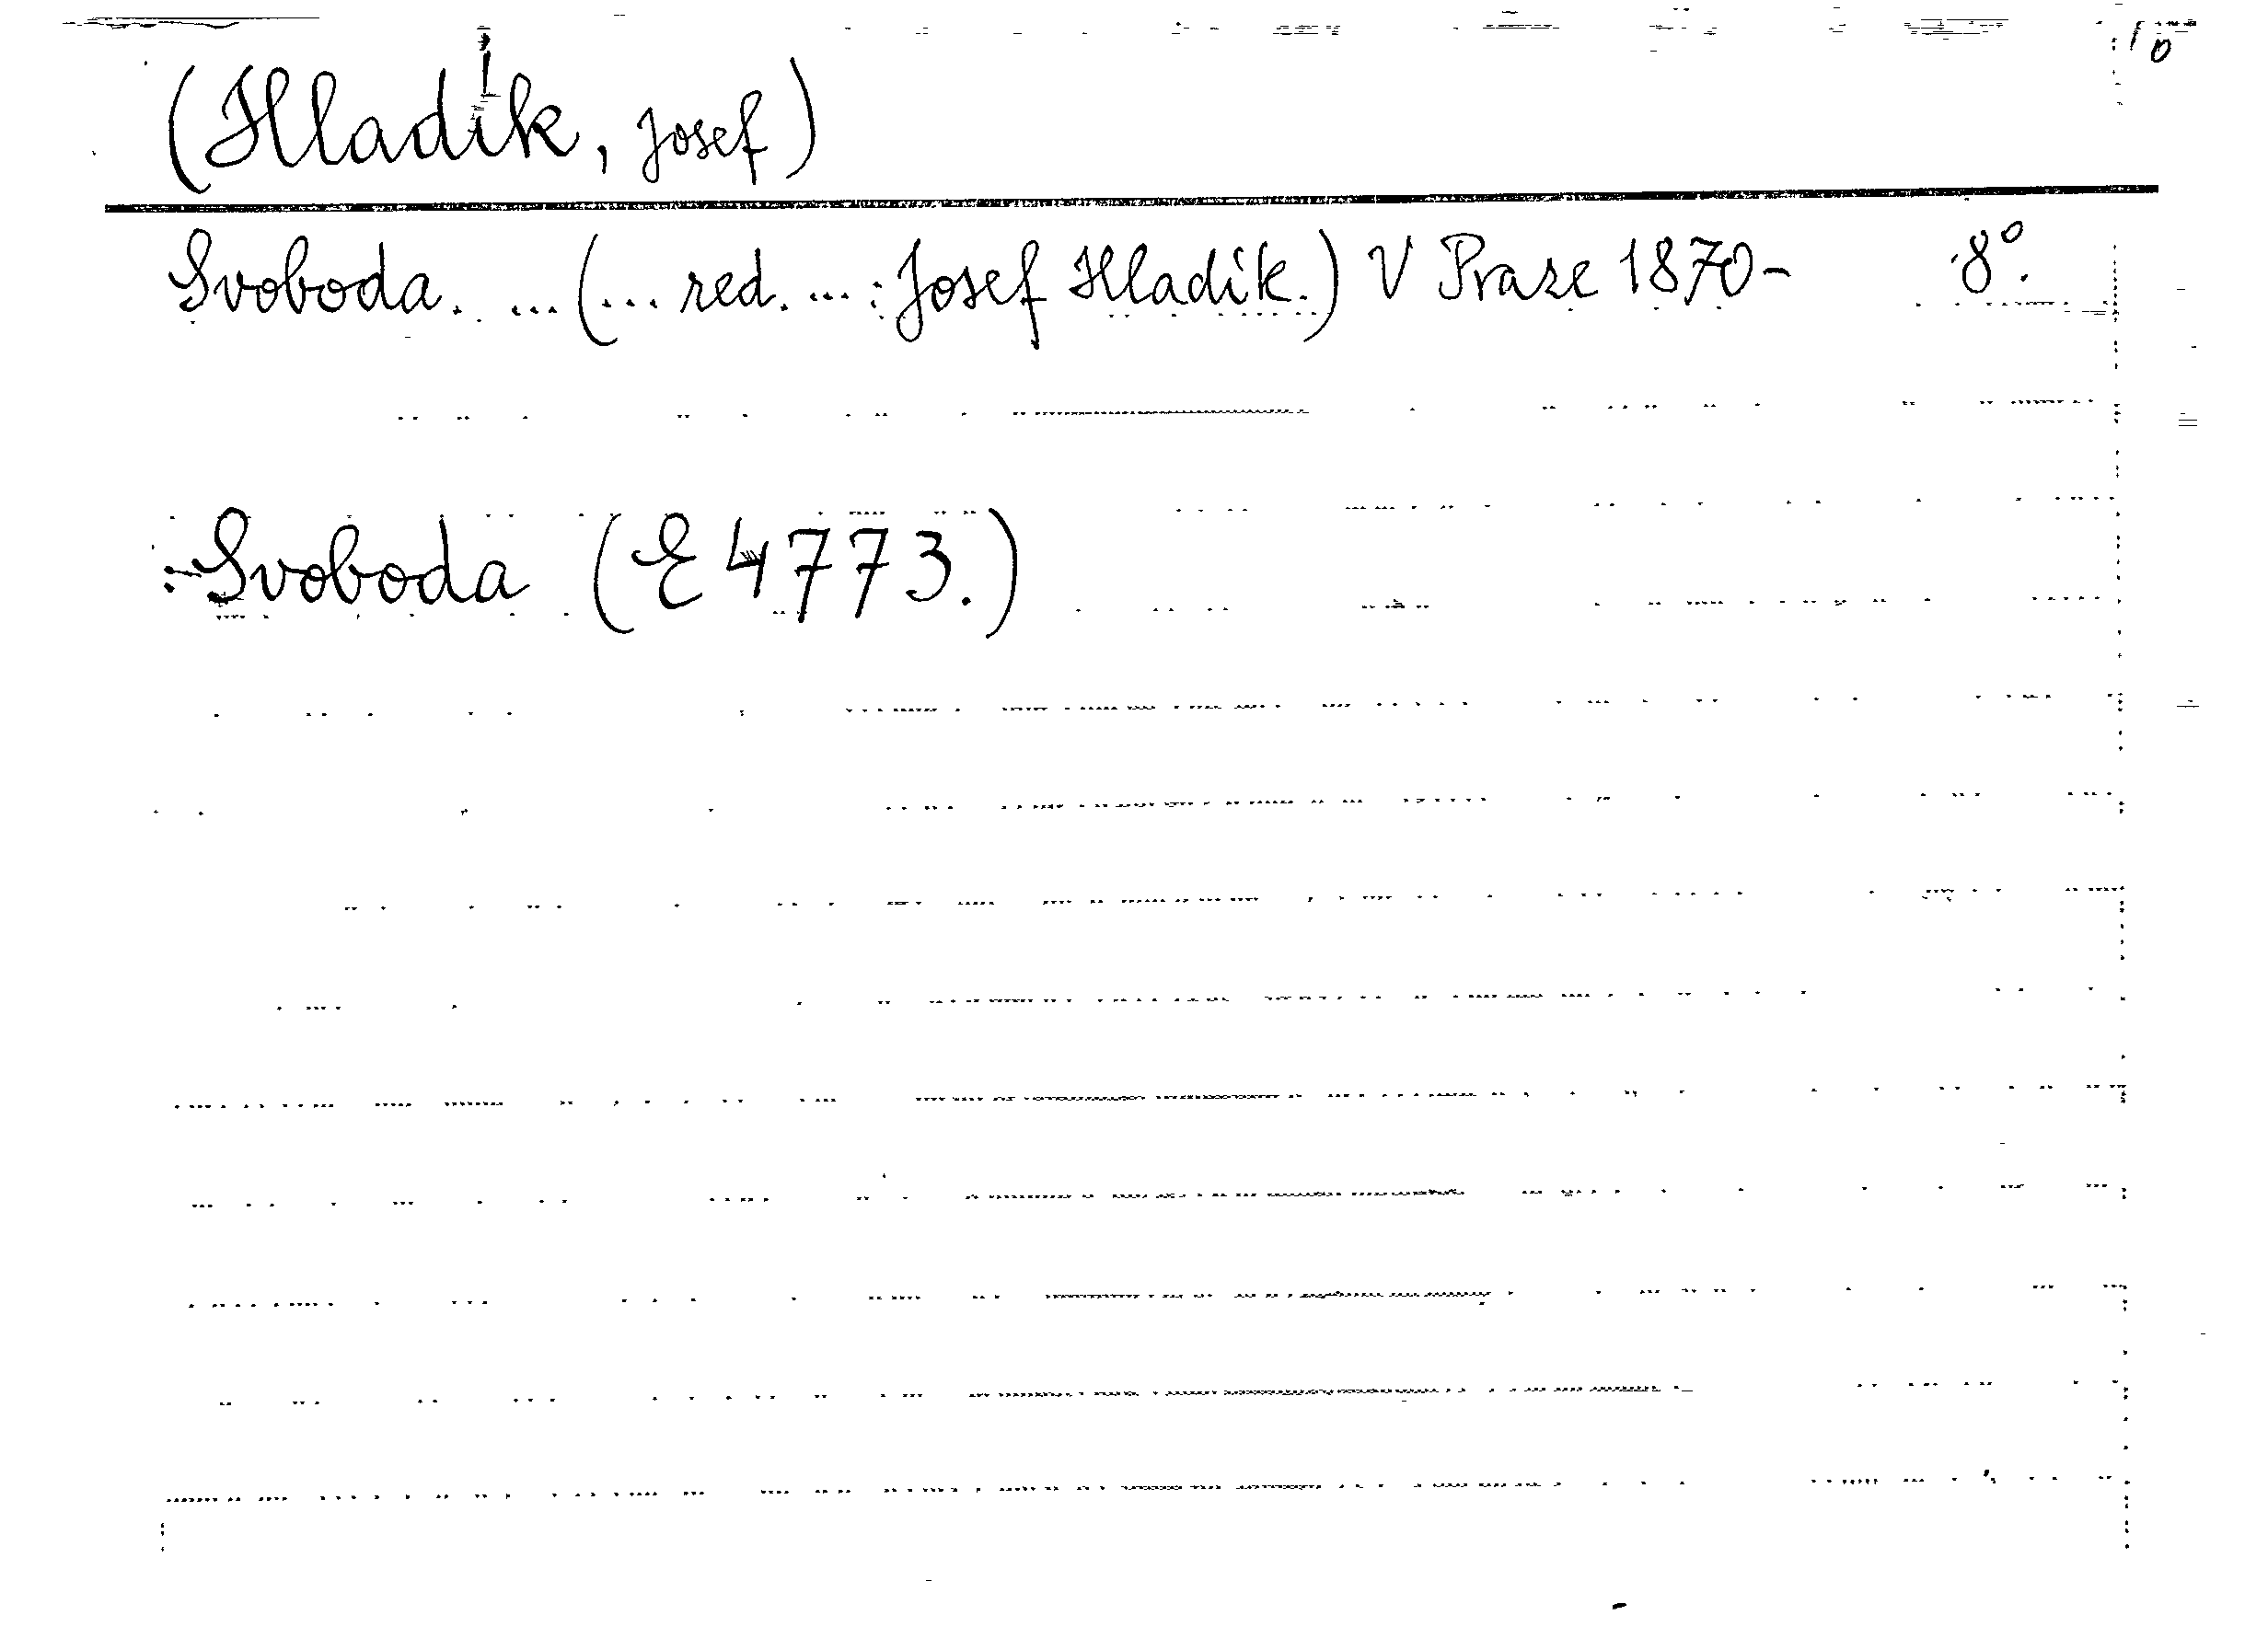 (Hladík, Josef)
Svoboda. ... (... red. ... : Josef Hladík.) V Praze 1870- 8°.
:-Svoboda (E 4773.)